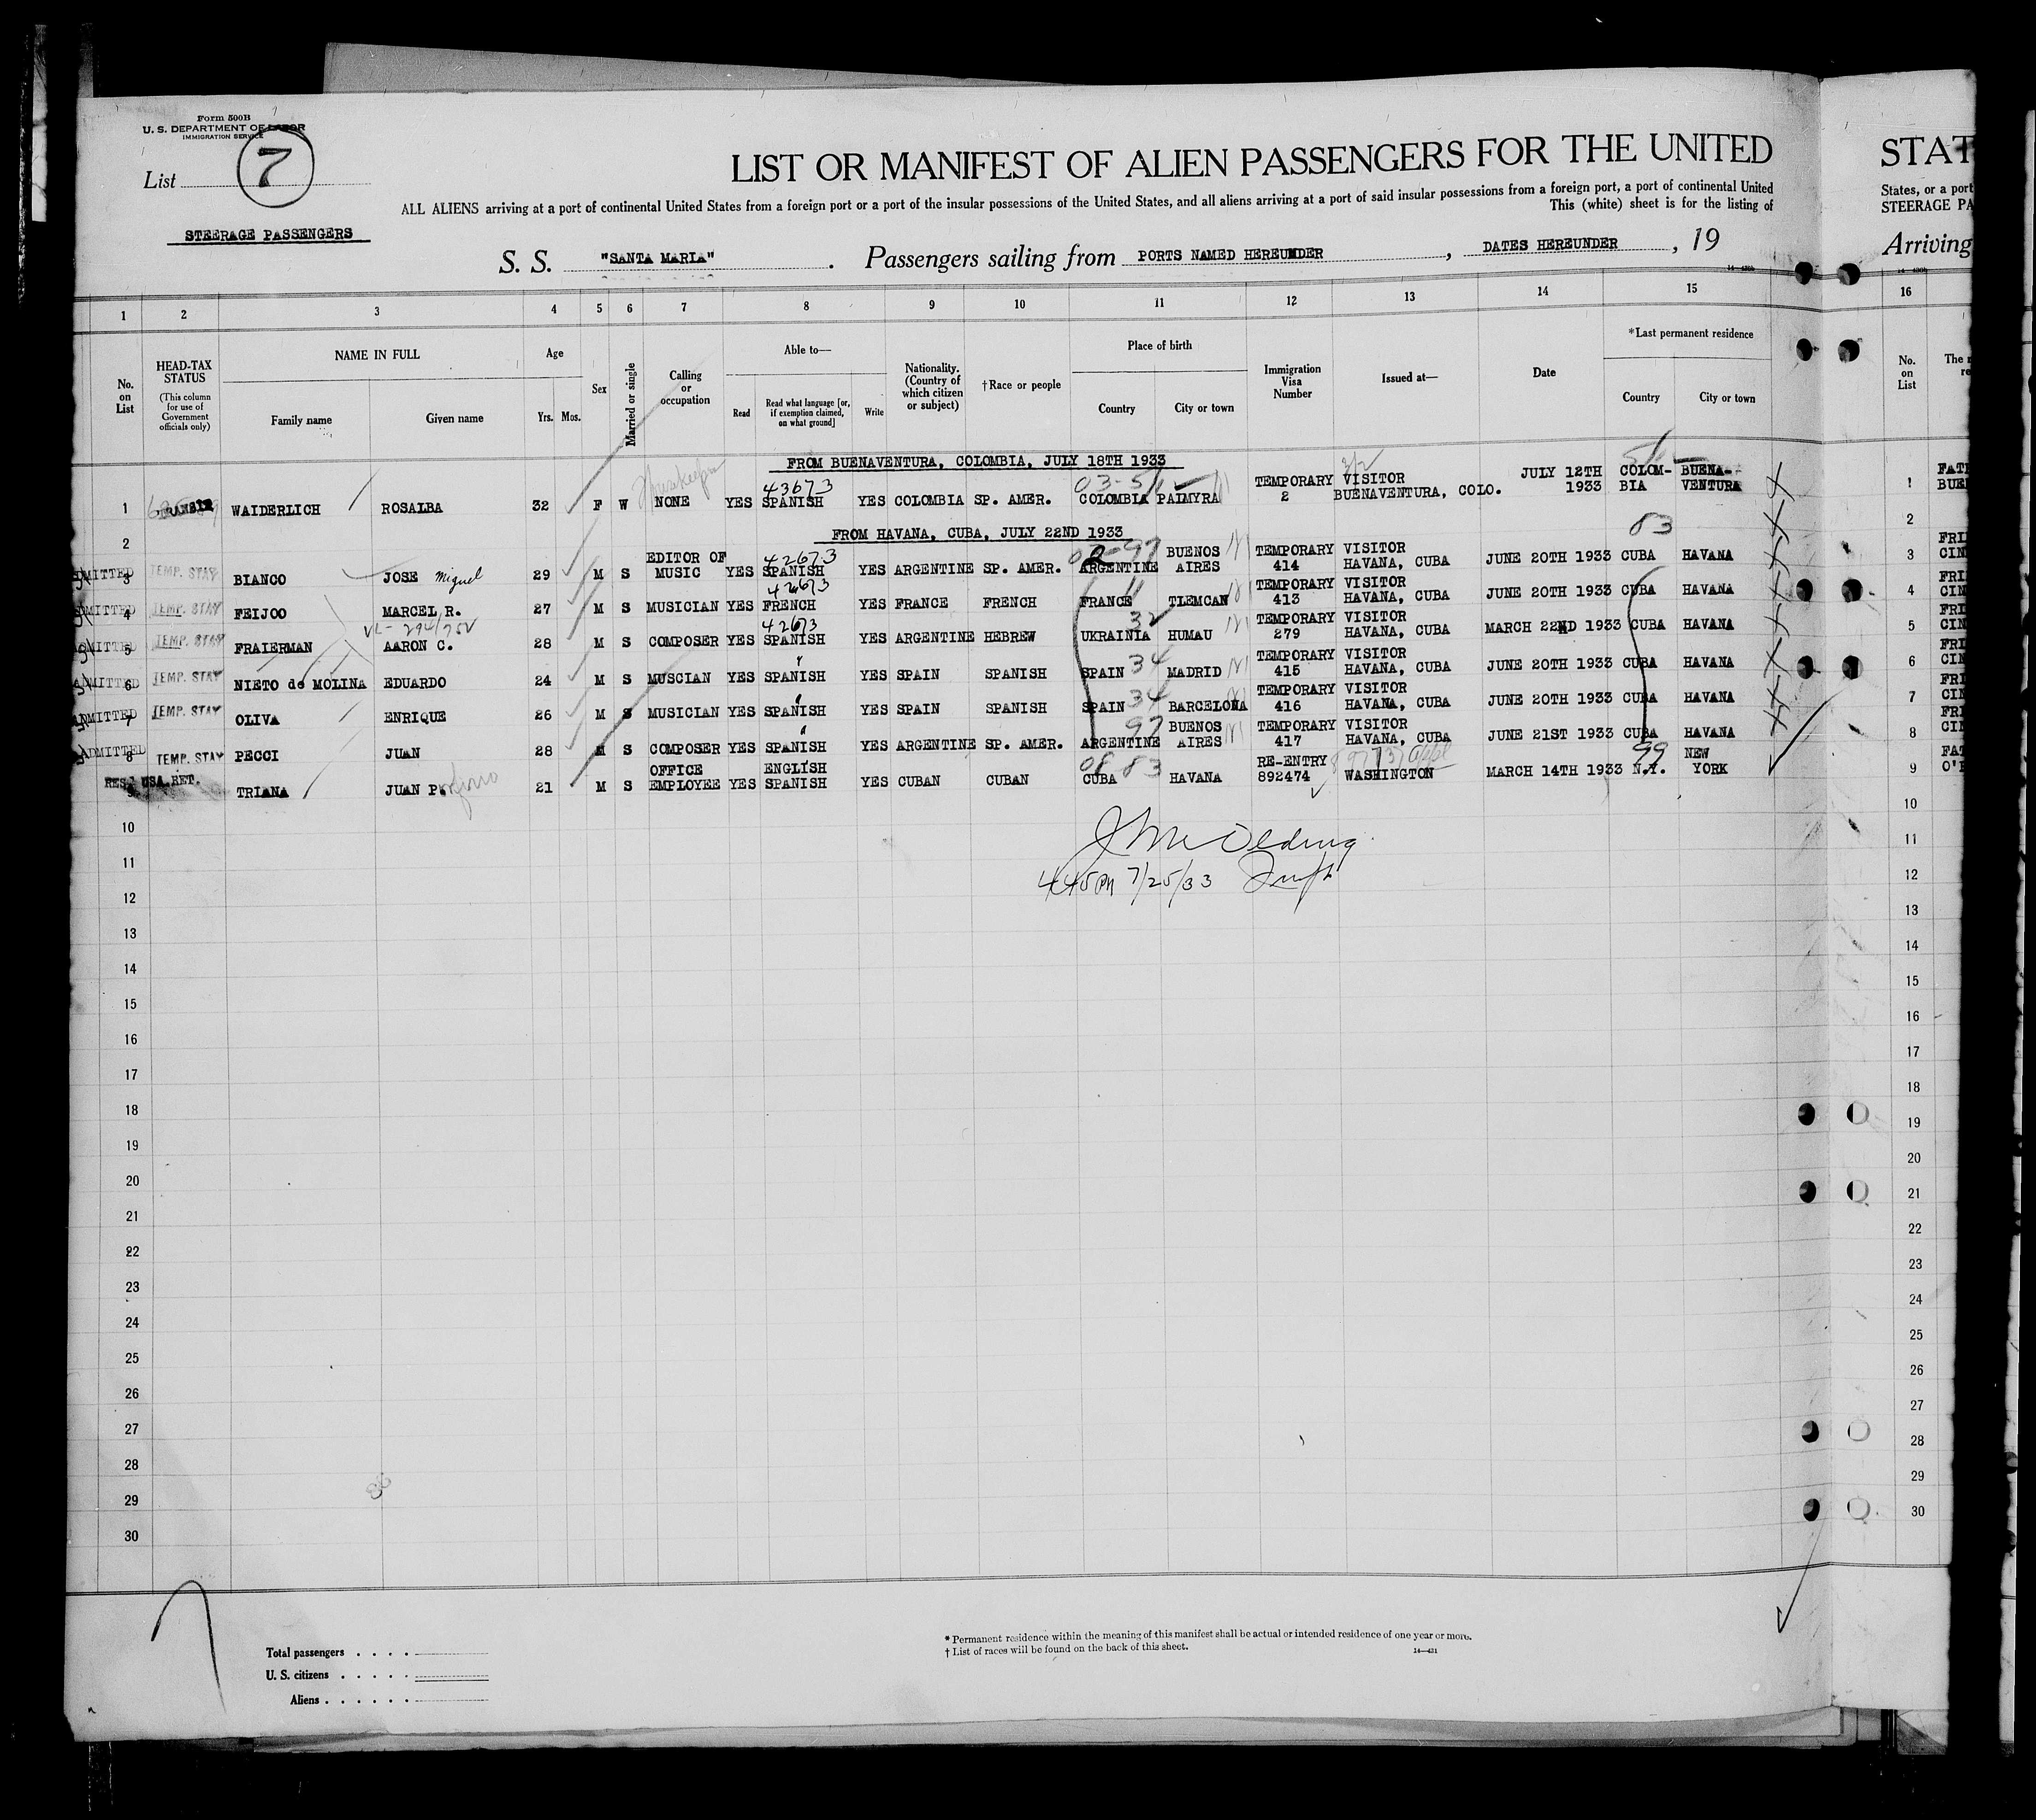 Form 500B
U. S. DEPARTMENT OF LABOR
IMMIGRATION SERVICE
List 7
LIST OR MANIFEST OF ALIEN PASSENGERS FOR THE UNITED
STAT
ALL ALIENS arriving at a port of continental United States from a foreign port or a port of the insular possessions of the United States, and all aliens arriving at a port of said insular possessions from a foreign port, a port of continental United
States, or a port
This (white) sheet is for the listing of
STEERAGE PA
STEERAGE PASSENGERS
S. S. "SANTA MARIA". Passengers sailing from PORTS NAMED HEREUNDER, DATES HEREUNDER, 19
Arriving
1 2 3 4 5 6 7 8 9 10 11 12 13 14 15 16
No. on List
HEAD-TAX STATUS (This column for use of Government officials only)
NAME IN FULL
Family name Given name
Age
Yrs. Mos.
Sex
Married or single
Calling or occupation
Able to—
Read
Read what language [or, if exemption claimed, on what ground]
Write
Nationality. (Country of which citizen or subject)
†Race or people
Place of birth
Country City or town
Immigration Visa Number
Issued at—
Date
*Last permanent residence
Country City or town
No. on List
FROM BUENAVENTURA, COLOMBIA, JULY 18TH 1933
1 TRANSIT WAIDERLICH ROSALBA 32 F W Housekeeper NONE YES 43673 SPANISH YES COLOMBIA SP. AMER. 03-51 COLOMBIA PALMYRA TEMPORARY VISITOR 2 BUENAVENTURA, COLO. JULY 12TH 1933 COLOM-BIA BUENA-VENTURA 1
2 FROM HAVANA, CUBA, JULY 22ND 1933 83 2
ADMITTED 3 TEMP. STAY BIANCO JOSE Miguel 29 M S EDITOR OF MUSIC YES 42673 SPANISH YES ARGENTINE SP. AMER. 97 ARGENTINE BUENOS AIRES TEMPORARY VISITOR 414 HAVANA, CUBA JUNE 20TH 1933 CUBA HAVANA 3
ADMITTED 4 TEMP. STAY FEIJOO MARCEL R. 27 M S MUSICIAN YES 42673 FRENCH YES FRANCE FRENCH 11 FRANCE TLEMCAN TEMPORARY VISITOR 413 HAVANA, CUBA JUNE 20TH 1933 CUBA HAVANA 4
ADMITTED 5 TEMP. STAY FRAIERMAN VL-294/752 AARON C. 28 M S COMPOSER YES 42673 SPANISH YES ARGENTINE HEBREW 32 UKRAINIA HUMAU TEMPORARY VISITOR 279 HAVANA, CUBA MARCH 22ND 1933 CUBA HAVANA 5
ADMITTED 6 TEMP. STAY NIETO de MOLINA EDUARDO 24 M S MUSCIAN YES " SPANISH YES SPAIN SPANISH SPAIN 34 MADRID TEMPORARY VISITOR 415 HAVANA, CUBA JUNE 20TH 1933 CUBA HAVANA 6
ADMITTED 7 TEMP. STAY OLIVA ENRIQUE 26 M S MUSICIAN YES " SPANISH YES SPAIN SPANISH SPAIN 34 BARCELONA TEMPORARY VISITOR 416 HAVANA, CUBA JUNE 20TH 1933 CUBA HAVANA 7
ADMITTED 8 TEMP. STAY PECCI JUAN 28 M S COMPOSER YES " SPANISH YES ARGENTINE SP. AMER. 97 ARGENTINE BUENOS AIRES TEMPORARY VISITOR 417 HAVANA, CUBA JUNE 21ST 1933 CUBA HAVANA 8
RES. USA RET. 9 TRIANA JUAN P. 21 M S OFFICE EMPLOYEE YES ENGLISH SPANISH YES CUBAN CUBAN 08 83 CUBA HAVANA RE-ENTRY 892474 WASHINGTON MARCH 14TH 1933 99 N.Y. NEW YORK 9
10 10
11 11
12 4 45 PM 7/25/33 12
13 13
14 14
15 15
16 16
17 17
18 18
19 19
20 20
21 21
22 22
23 23
24 24
25 25
26 26
27 27
28 28
29 29
30 30
Total passengers . . . .
U. S. citizens . . . . .
Aliens . . . . . .
* Permanent residence within the meaning of this manifest shall be actual or intended residence of one year or more.
† List of races will be found on the back of this sheet.
14—431